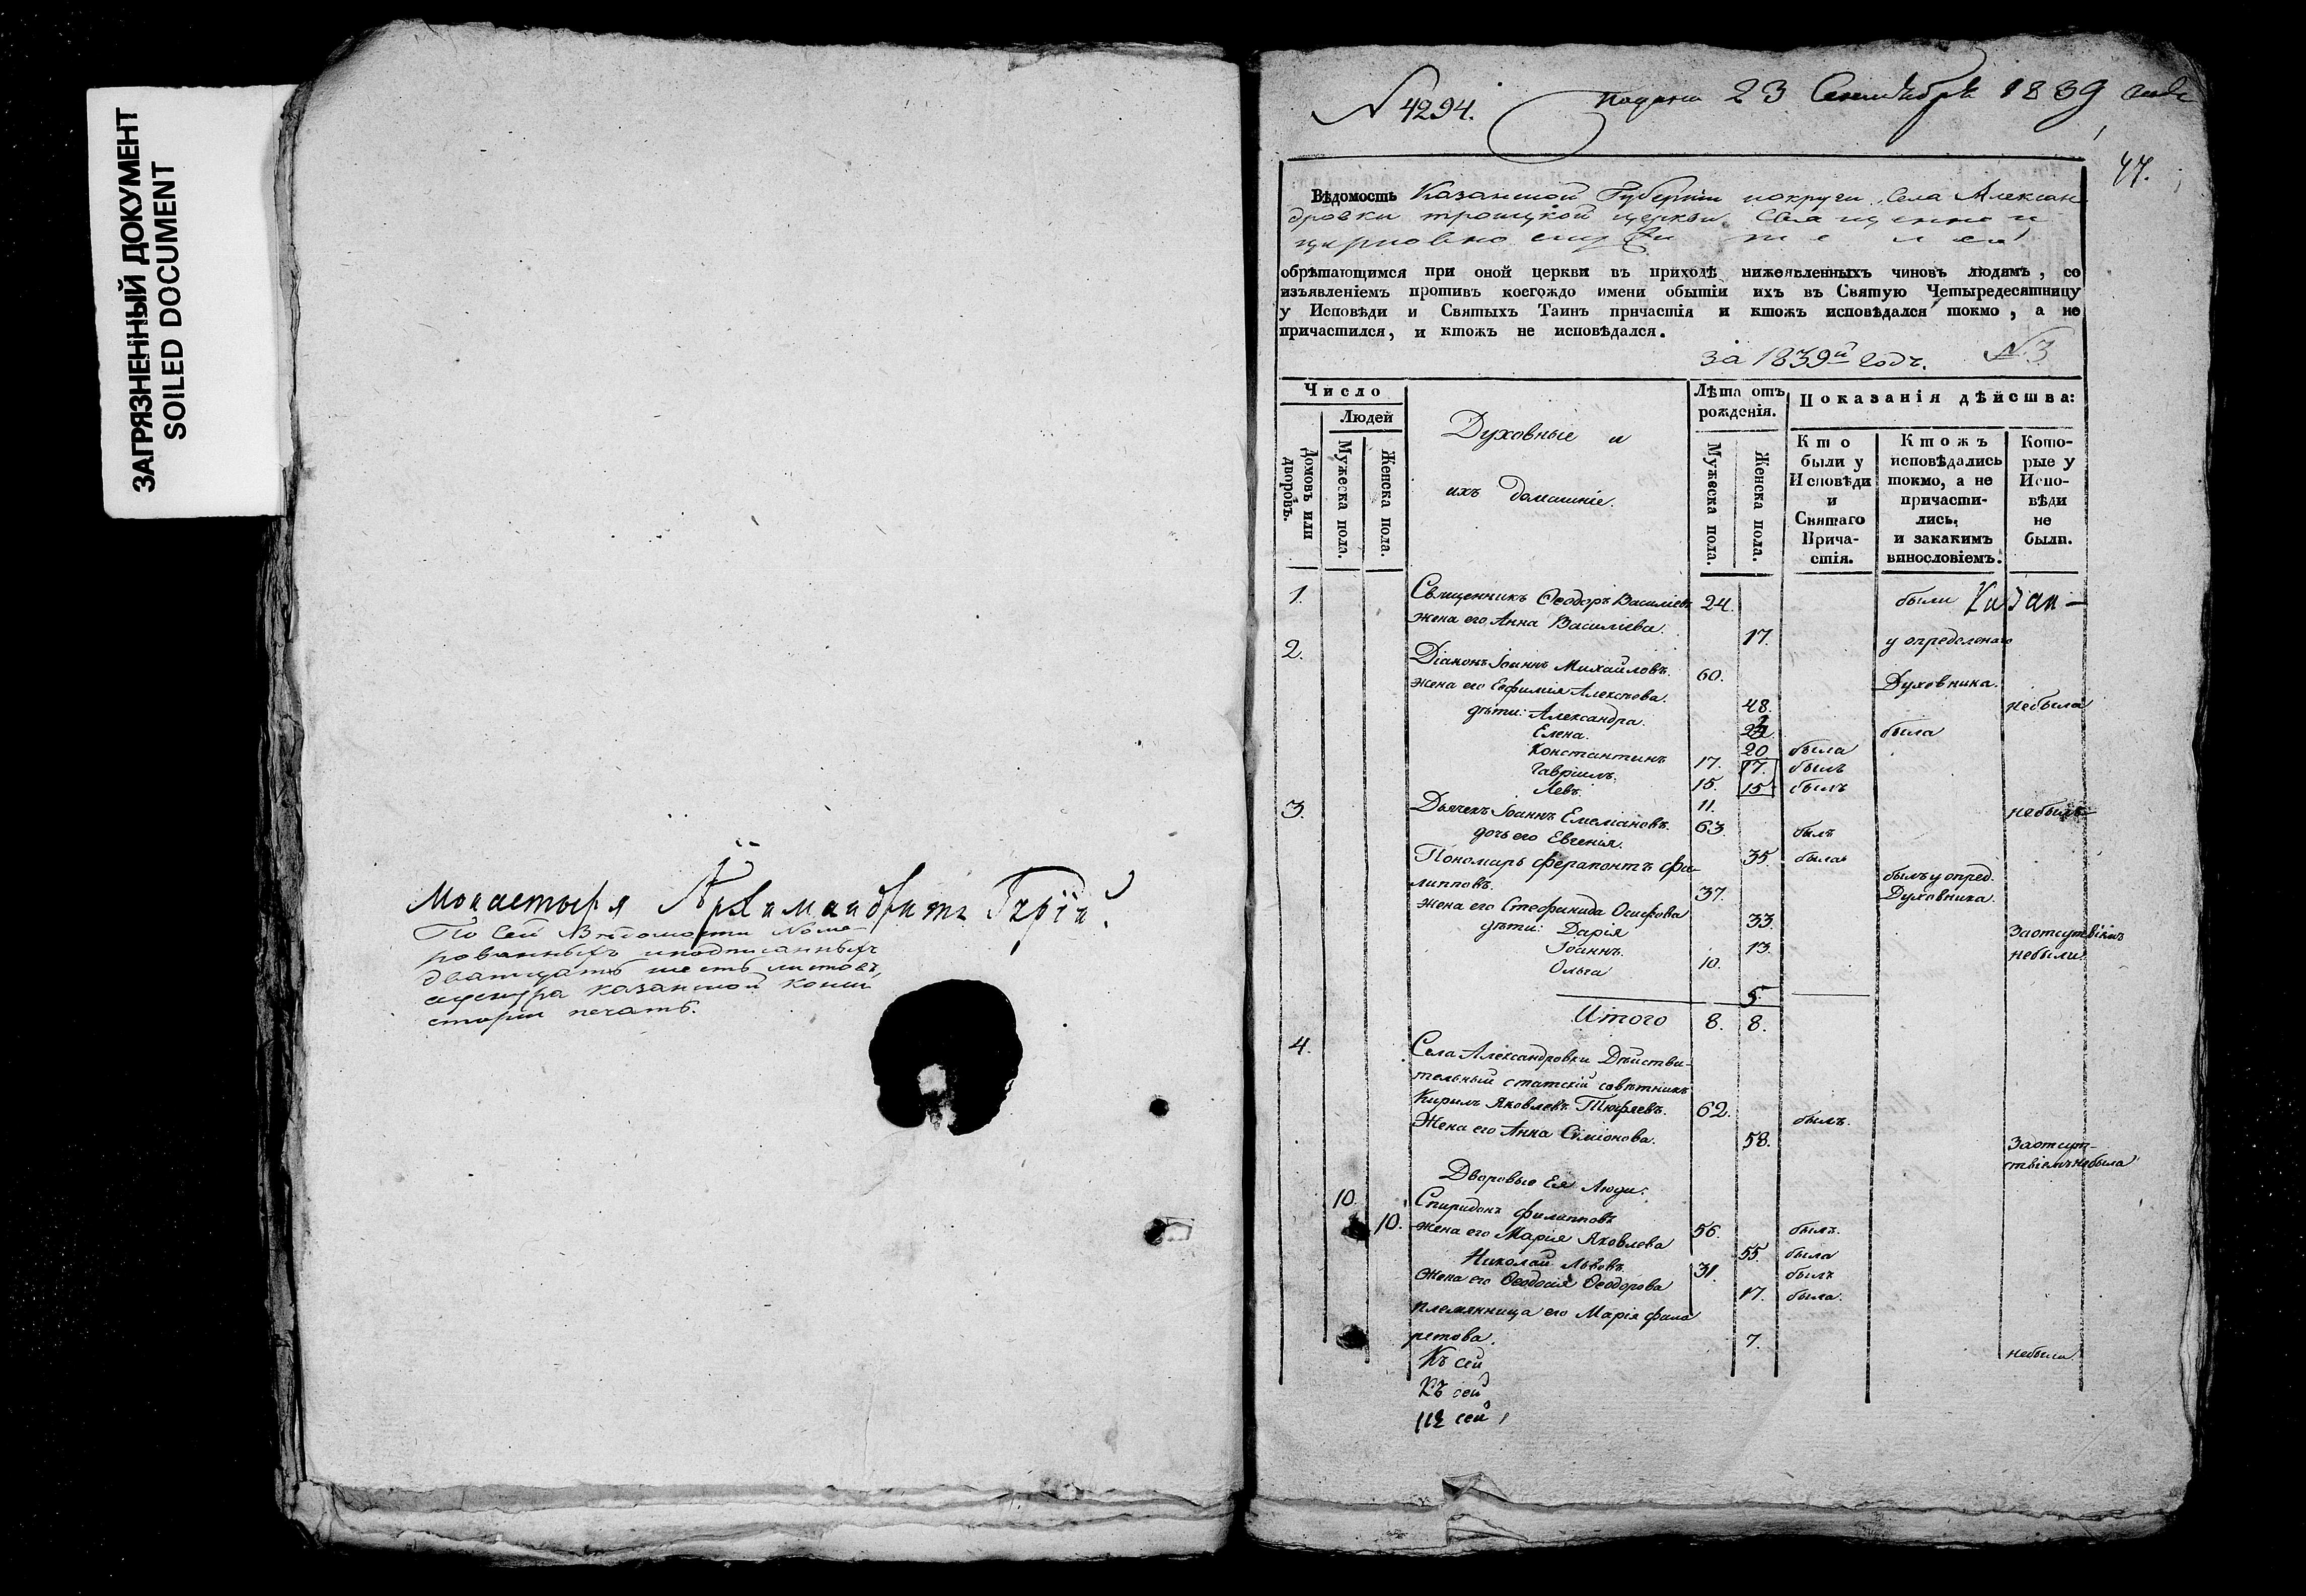 ЗАГРЯЗНЕННЫЙ ДОКУМЕНТ
SOILED DOCUMENT
Монастыря Архимандритъ Гурій.
По сей Вѣдомости Номе-
рованныхъ иподписанныхъ
дватцать шесть листовъ,
ушнура казанской конси
сторіи печать.
N 4294.
подана 23 Сентября 1839 года
47.
Вѣдомость Казанской Губерніи иокруги, Села Алексан
дровки троицкой церкви Священно и
церковно служителей
обрѣтающимся при оной церкви въ приходѣ нижеявленныхъ чиновъ людямъ, со
изъявленіемъ противъ коегождо имени обытіи ихъ въ Святую Четыредесятницу
у Исповѣди и Святыхъ Таинъ причастія и ктожъ исповѣдался токмо, а не
причастился, и ктожъ не исповѣдался.
за 1839й годъ. N.3
Число
Людей
Домовъ или дворовъ.
Мужеска пола.
Женска пола.
Духовные и
ихъ домашніе.
Лѣта отъ
рожденія.
Мужеска пола.
Женска пола.
Показанія дѣйства:
Кто
были у
Исповѣди
и
Святаго
Прича-
стія.
Ктожъ
исповѣдались
токмо, а не
причасти-
лись,
и закакимъ
винословіемъ.
Кото-
рые у
Испо-
вѣди
не
были.
1. Священникъ Ѳеодоръ Василіевъ 24. были Казан-
жена его Анна Василіева. 17. у определенаго
2. Діаконъ Іоаннъ Михайловъ. 60. Духовника.
жена его Евфимія Алексѣева. 48. небыла
дѣти: Александра. была
Елена. 20 была
Константинъ 17. 17. былъ
Гавріилъ. 15. 15 былъ
Левъ. 11. небылъ
3. Дьячекъ Іоаннъ Емеліановъ. 63. былъ
дочь его Евгенія. 35. была
Пономарь Ферапонтъ Фи-
липповъ. 37. былъ у опред. Духовника.
жена его Стефанида Осифова 33.
дѣти: Дарія 13. Заотсутствіемъ
Іоаннъ. 10. небыли.
Ольга 5.
Итого 8. 8.
4. Села Александровки Дѣйстви-
тельный статскій совѣтникъ
Кирилъ Яковлевъ Тюфяевъ. 62. былъ.
Жена его Анна Симіонова. 58. Заотсут-
ствіемъ небыла
Дворовые Ея Люди:
10. Спиридонъ Филипповъ 56. былъ.
10. жена его Марія Яковлева 55. была
Николай Львовъ 31. былъ
жена его Ѳеодосія Ѳеодорова 17. была.
племянница его Марія Фила
ретова. 7. небыла.
Къ сей
Къ сей
сей